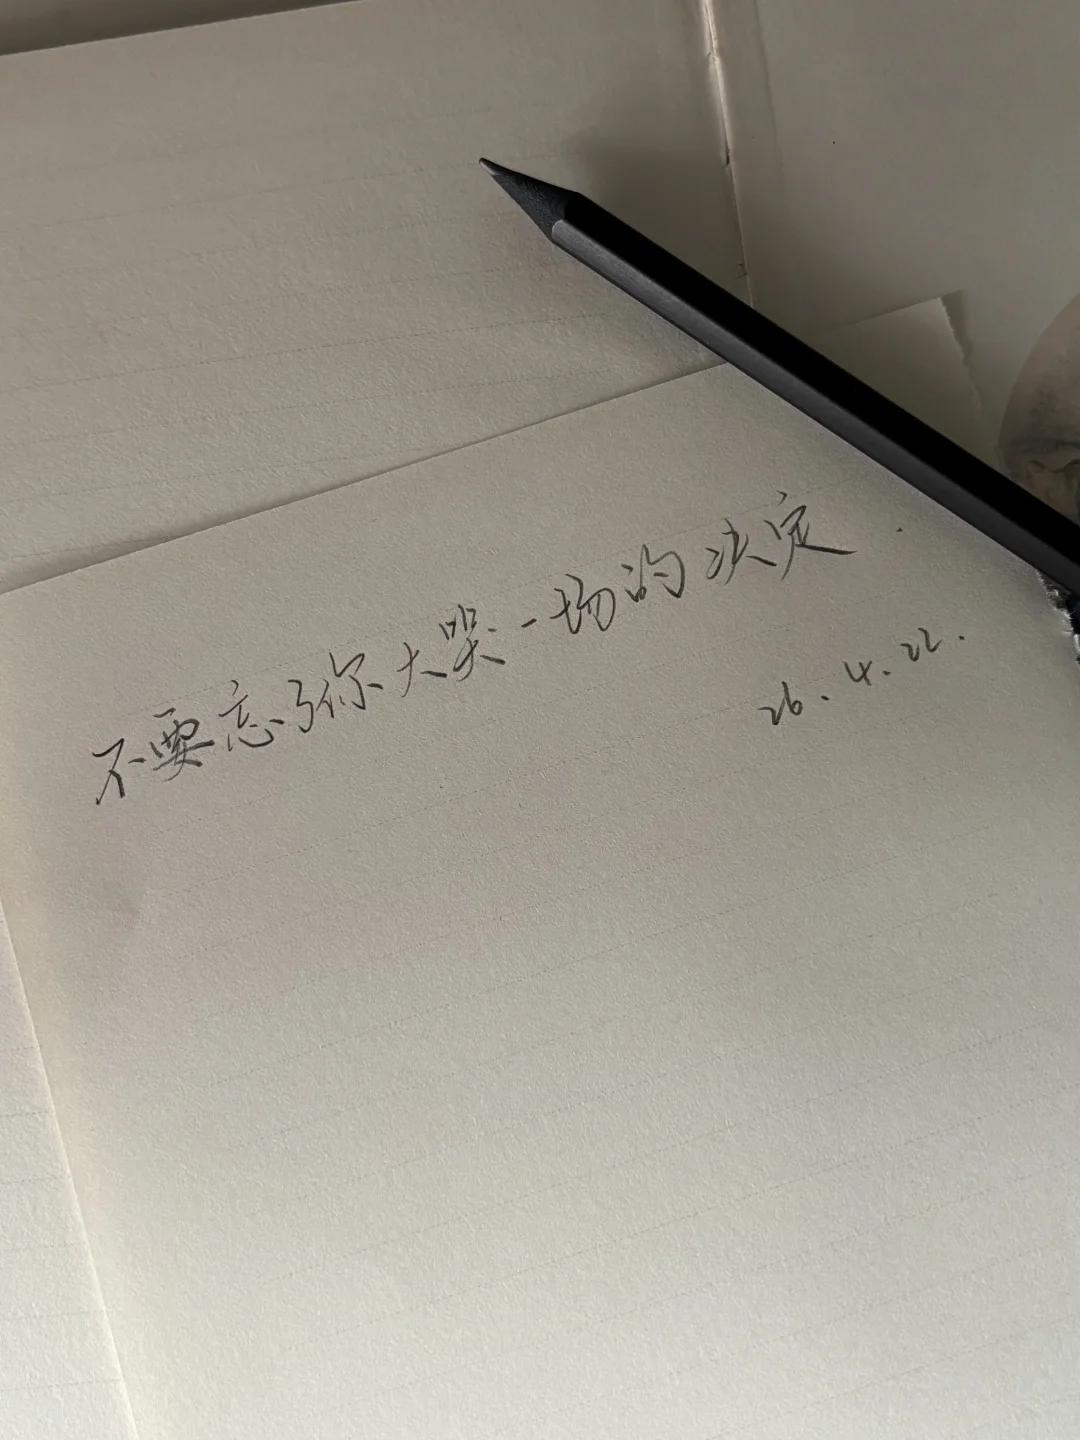 不要忘了你大哭一场的决定.
26.4.22.